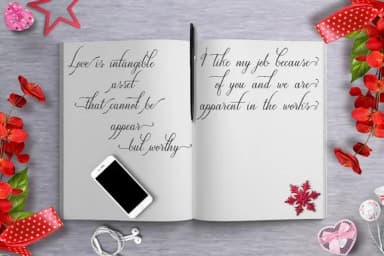 Love is intangible
asset
that cannot be
appear
but worthy
I like my job because
of you and we are
apparent in the works